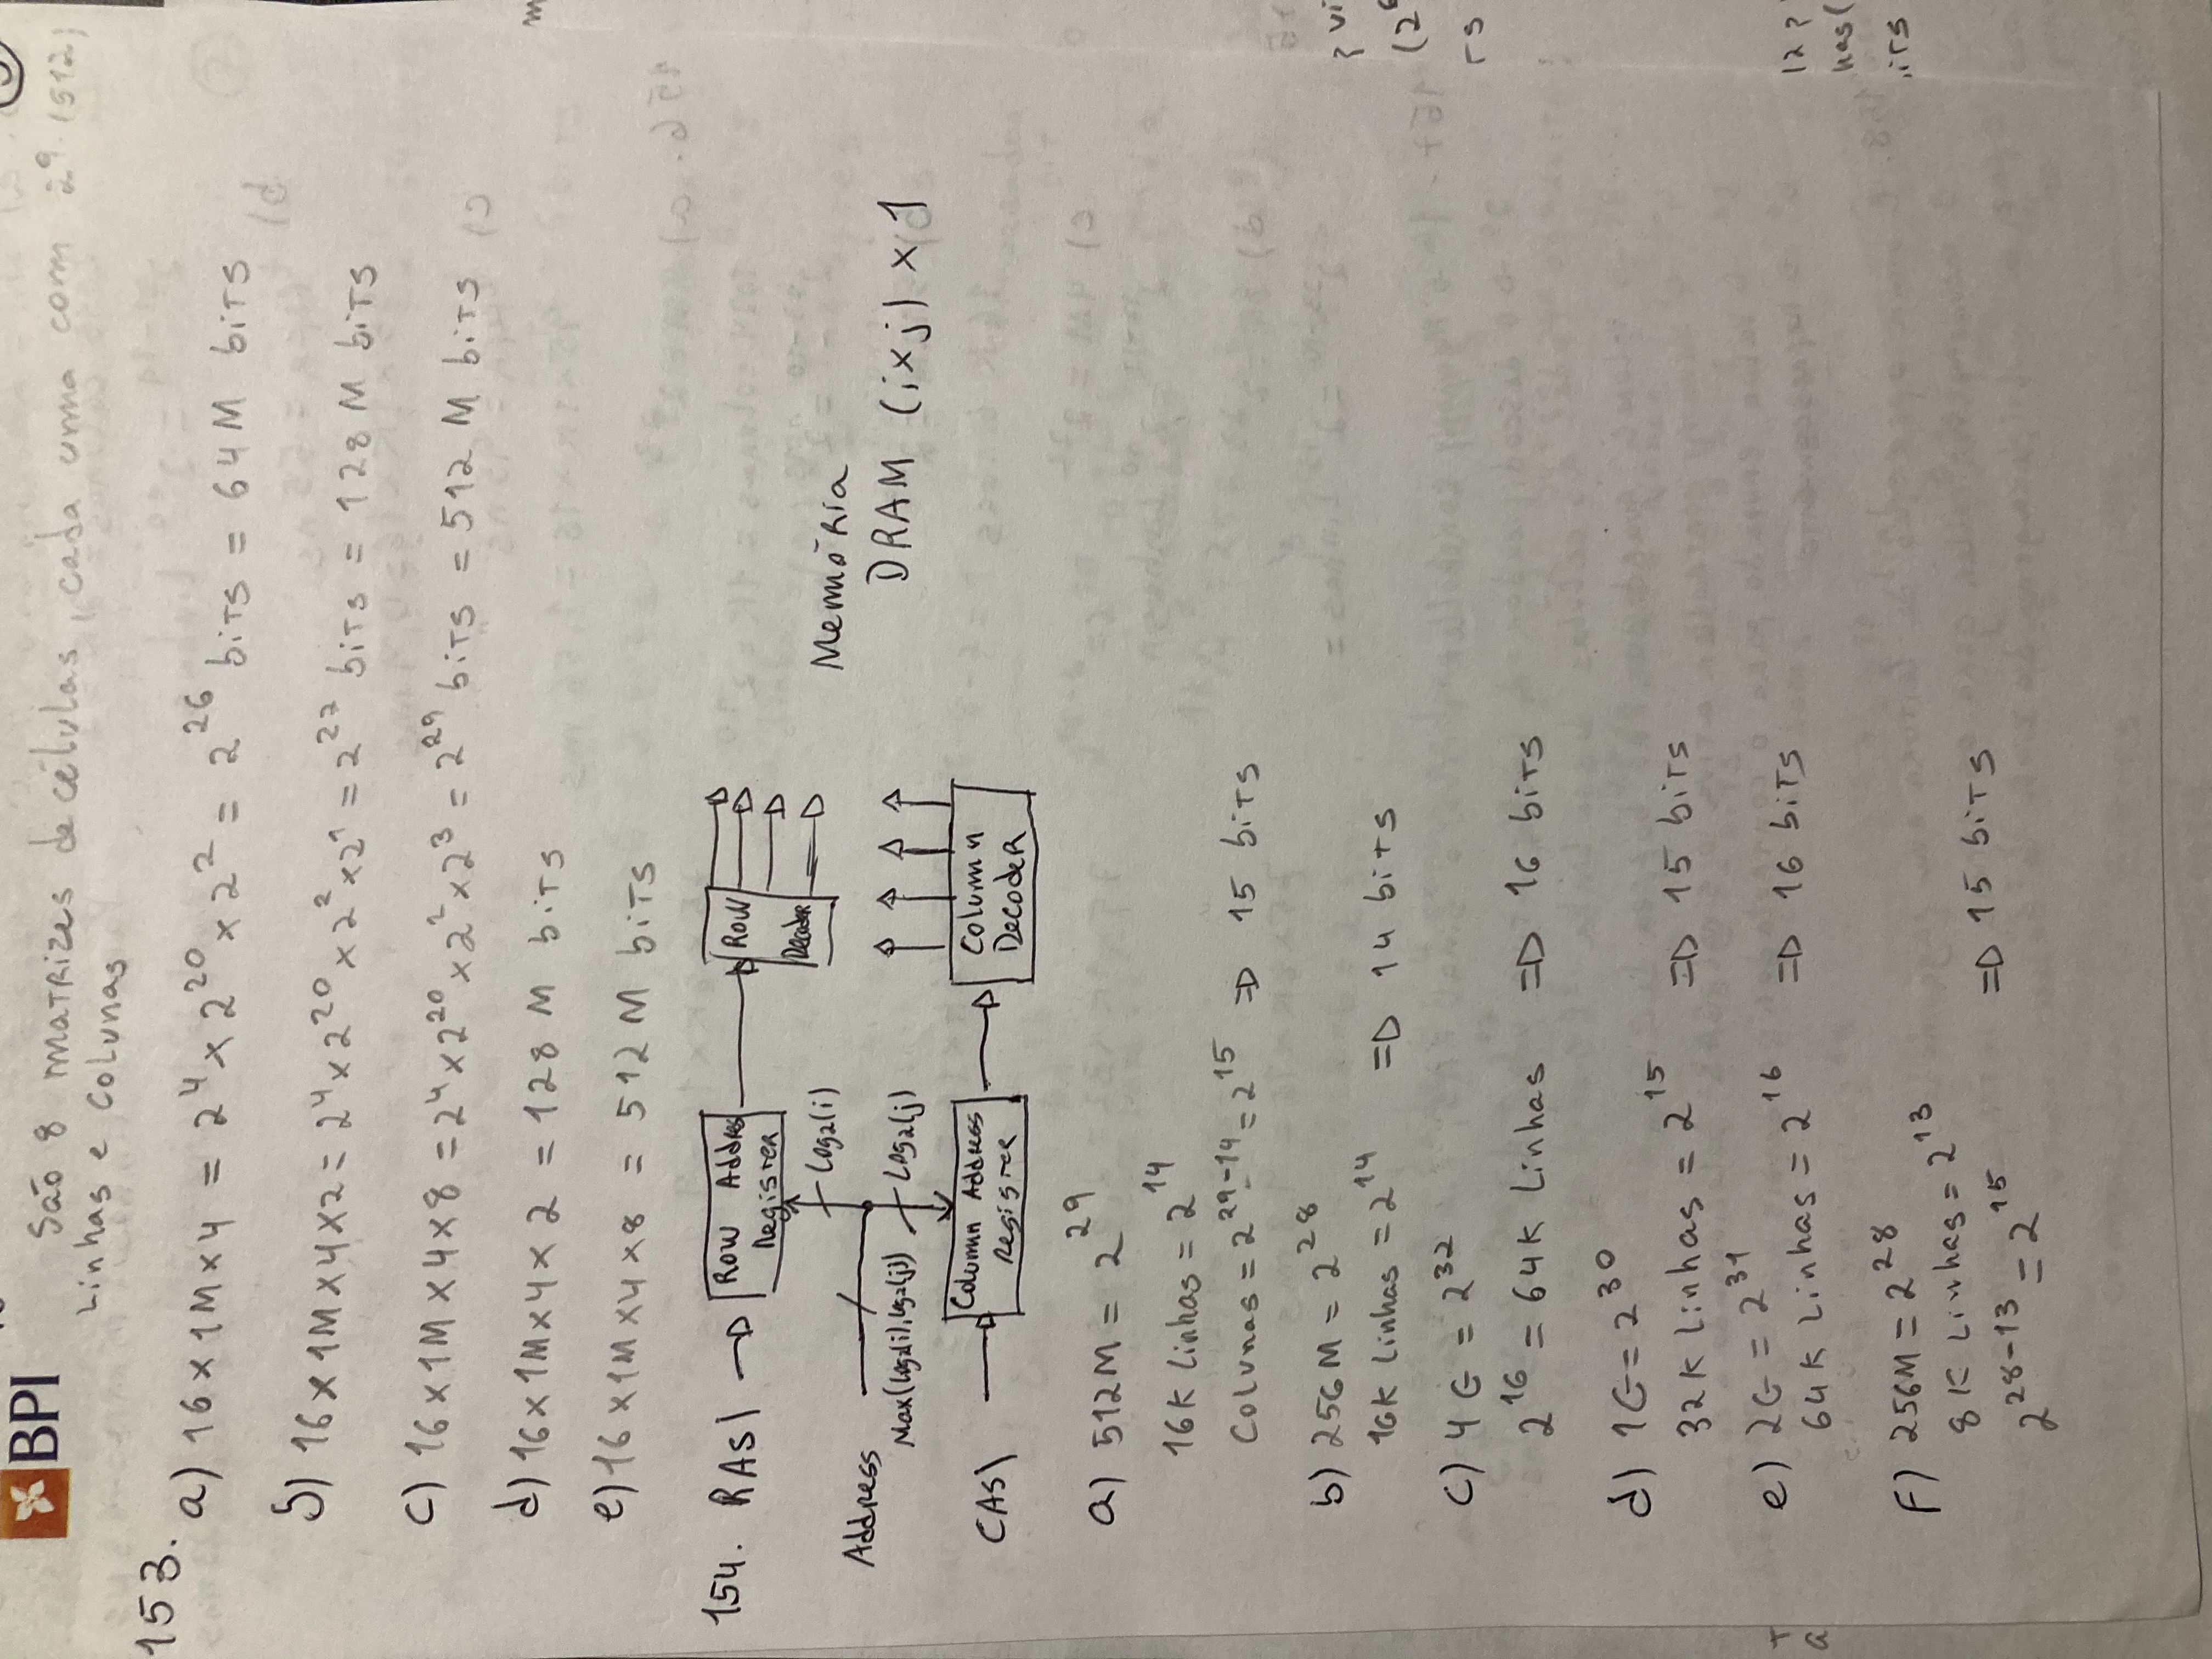 BPI
São 8 matrizes de células, cada uma com 2^9 (512)
Linhas e colunas
153.
a) 16 x 1M x 4 = 2^4 x 2^20 x 2^2 = 2^26 bits = 64 M bits
b) 16 x 1M x 4 x 2 = 2^4 x 2^20 x 2^2 x 2^1 = 2^27 bits = 128 M bits
c) 16 x 1M x 4 x 8 = 2^4 x 2^20 x 2^2 x 2^3 = 2^29 bits = 512 M bits
d) 16 x 1M x 4 x 2 = 128 M bits
e) 16 x 1M x 4 x 8 = 512 M bits
154. RAS\
Row Address
Register
Row
Decoder
Log2(i)
Address
Max(Log2(i), Log2(j))
Log2(j)
Memória
DRAM (i x j) x 1
CAS\
Column Address
Register
Column
Decoder
a) 512M = 2^29
16K Linhas = 2^14
Colunas = 2^29-14 = 2^15 => 15 bits
b) 256M = 2^28
16K Linhas = 2^14 => 14 bits
c) 4G = 2^32
2^16 = 64K Linhas => 16 bits
d) 1G = 2^30
32K Linhas = 2^15 => 15 bits
e) 2G = 2^31
64K Linhas = 2^16 => 16 bits
f) 256M = 2^28
8K Linhas = 2^13
2^28-13 = 2^15 => 15 bits